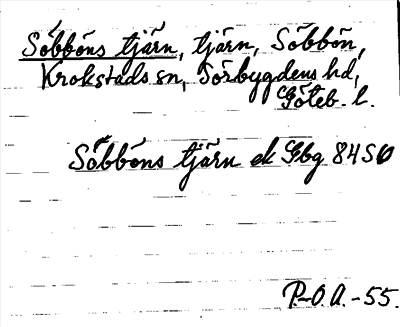 Söbböns tjärn, tjärn, Söbbön,
Krokstads sn, Sörbygdens hd,
Göteb. l.
Söbböns tjärn ek Gbg 84 SO
P.-O.A.-55.